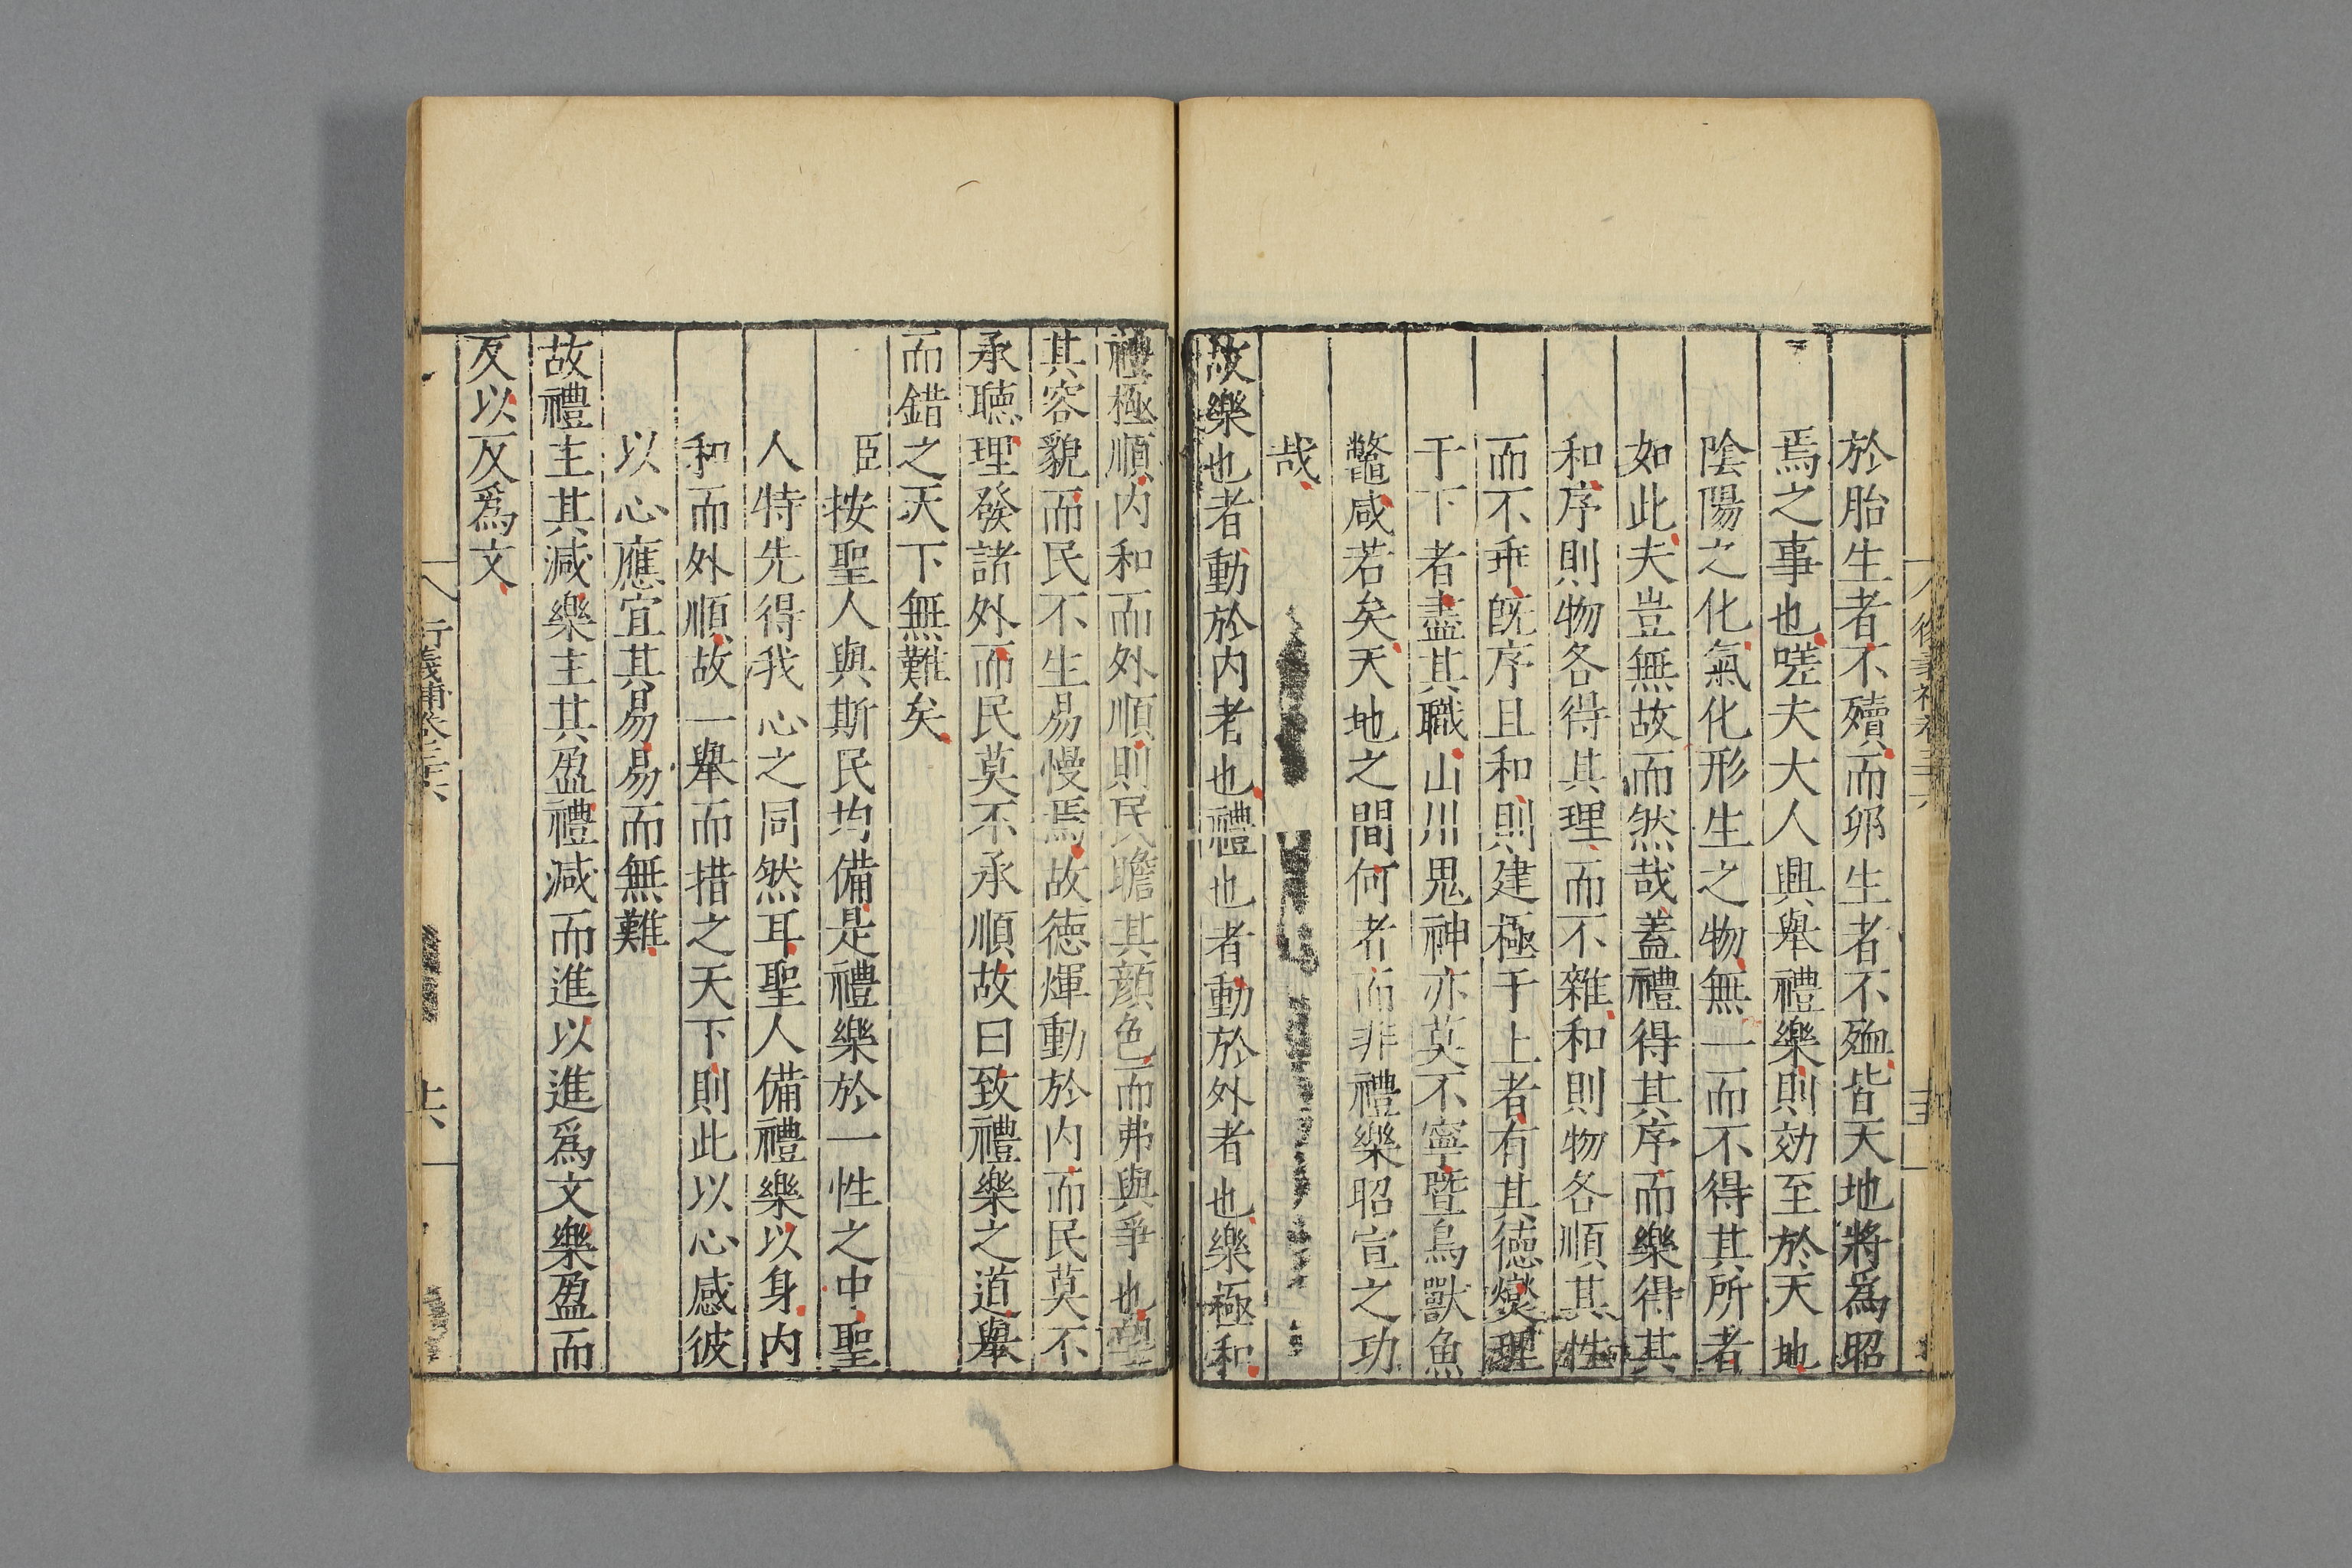 於胎生者不殰而卵生者不殈皆天地將爲昭
焉之事也嗟夫大人興舉禮樂則効至於天地
陰陽之化氣化形生之物無一而不得其所者
如此夫豈無故而然哉蓋禮得其序而樂得其
和序則物各得其理而不雜和則物各順其性
而不乖旣序且和則建極于上者有其德燮理
于下者盡其職山川鬼神亦莫不寧暨鳥獸魚
鼈咸若矣天地之間何者而非禮樂昭宣之功
哉
故樂也者動於内者也禮也者動於外者也樂極和
禮極順内和而外順則民瞻其顔色而弗與爭也望
其容貌而民不生易慢焉故德煇動於内而民莫不
承聽理發諸外而民莫不承順故曰致禮樂之道舉
而錯之天下無難矣
臣按聖人與斯民均備是禮樂於一性之中聖
人特先得我心之同然耳聖人備禮樂以身内
和而外順故一舉而措之天下則此以心感彼
以心應宜其易易而無難
故禮主其減樂主其盈禮減而進以進爲文樂盈而
反以反爲文